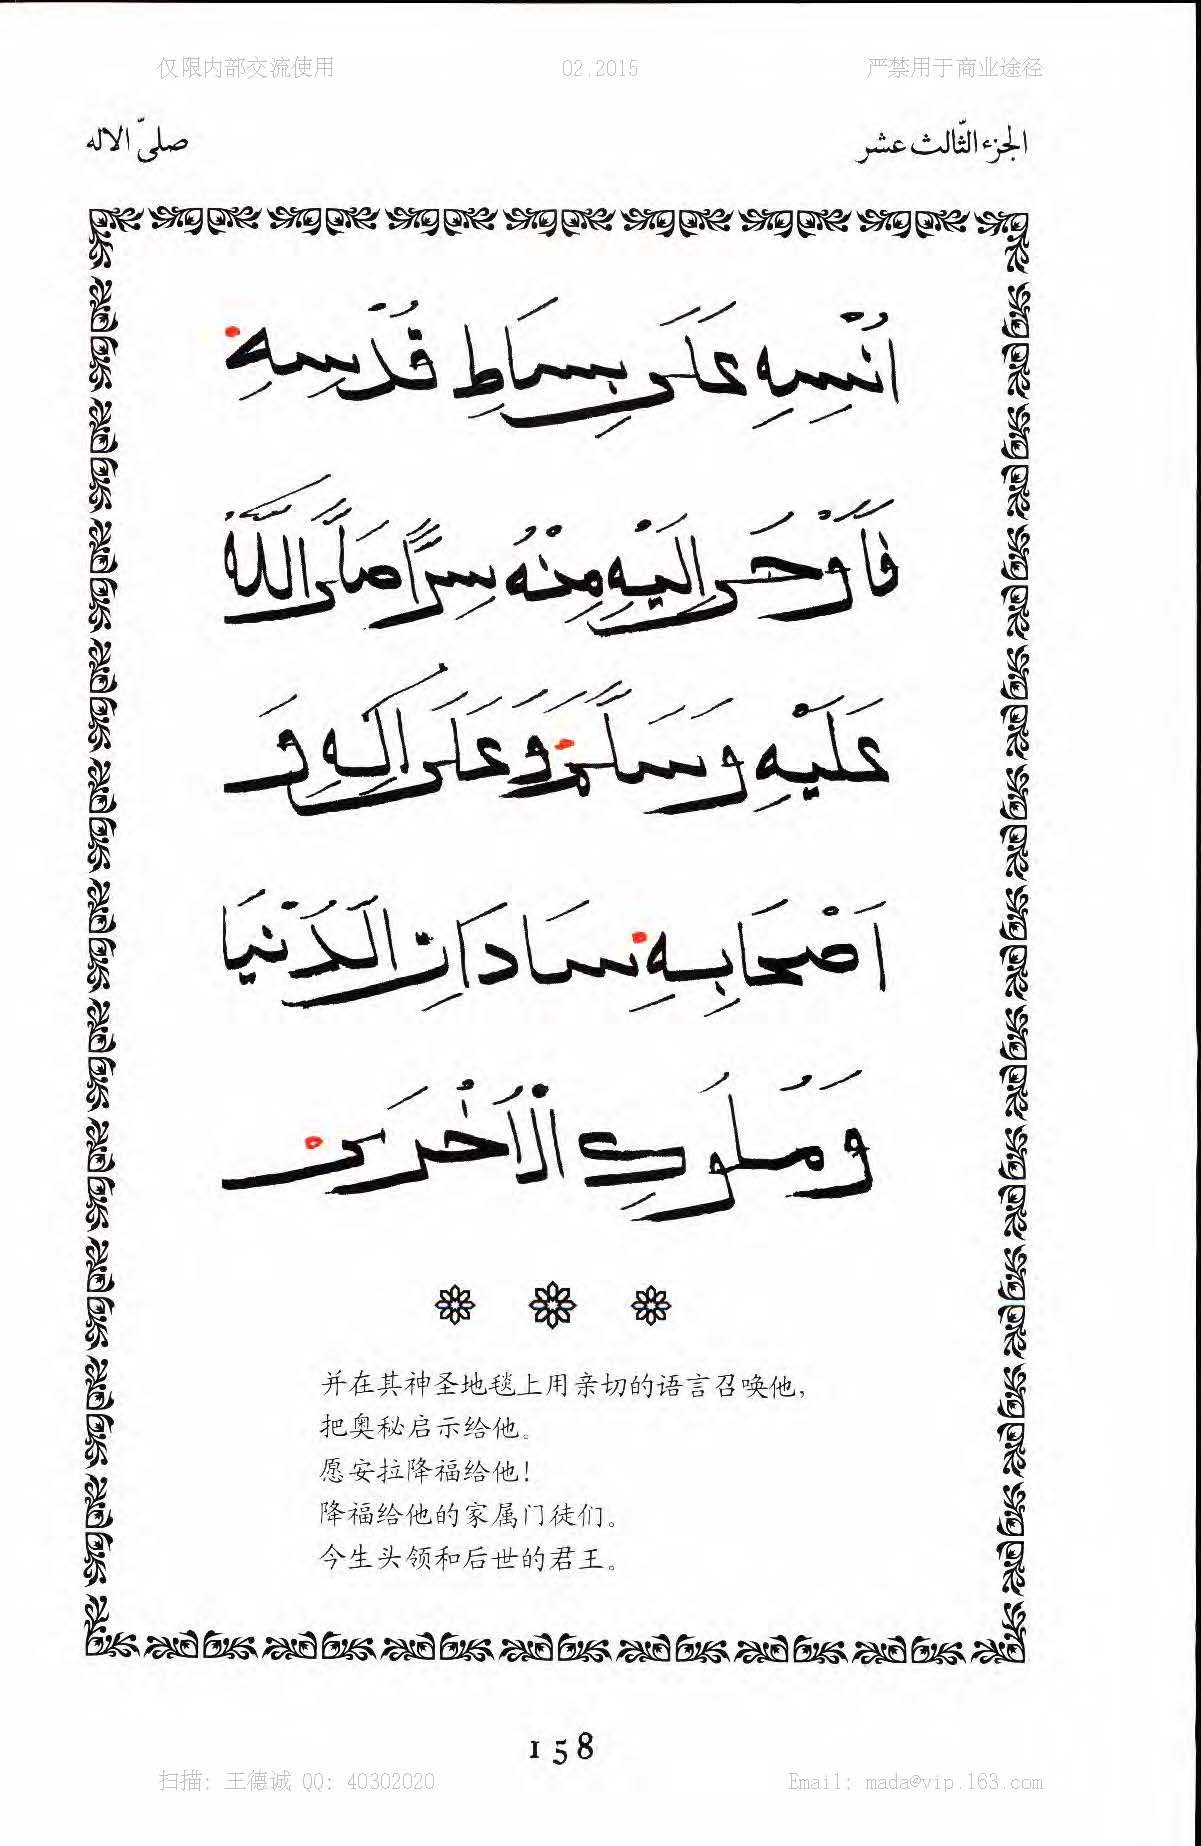 仅限内部交流使用 02.2015 严禁用于商业途径
الجزء الثّالث عشر
صلىّ الاله
اُنْسِهِ عَلَى بِسَاطِ قُدْسِهِ
فَاَوْحَى اِلَيْهِ مِنْهُ سِرًّا صَلَّى اللَّهُ
عَلَيْهِ وَسَلَّمَ وَعَلَى اٰلِهِ وَ
اَصْحَابِهِ سَادَاتِ الدُّنْيَا
وَمُلُوكِ الْاُخْرَى
并在其神圣地毯上用亲切的语言召唤他，
把奥秘启示给他。
愿安拉降福给他！
降福给他的家属门徒们。
今生头领和后世的君王。
158
扫描: 王德诚 QQ: 40302020 Email: mada@vip.163.com